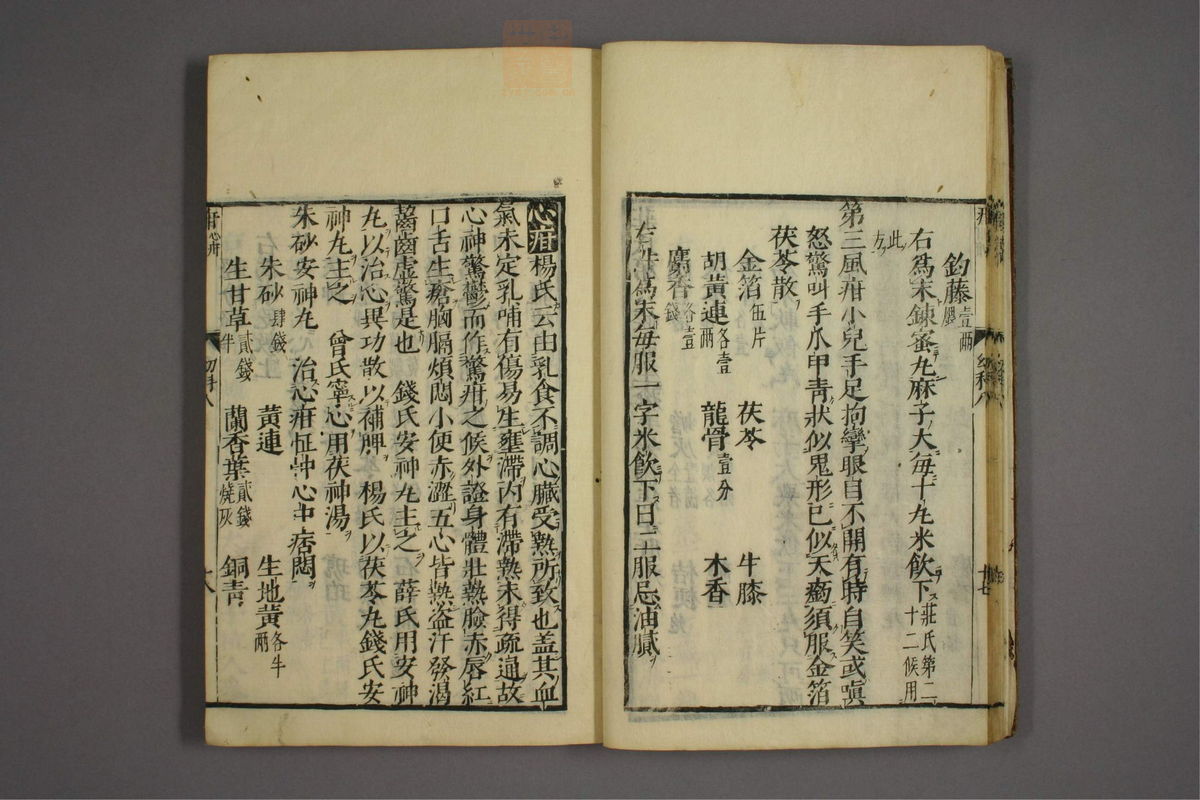 鈎藤壹兩
右爲末鍊蜜丸麻子大每十丸米飲下莊氏第二十二候用
此方
第三風疳小兒手足拘攣眼目不開有時自笑或嗔
怒驚叫手爪甲青狀似鬼形已似天癇須服金箔
茯苓散
金箔伍片 茯苓 牛膝
胡黃連各壹兩 龍骨壹分 木香
麝香各壹錢
右件爲末每服一字米飲下日二服忌油膩
心疳楊氏云由乳食不調心臟受熱所致也盖其血
氣未定乳哺有傷易生壅滯內有滯熱未得疏通故
心神驚鬱而作驚疳之候外證身體壯熱臉赤唇紅
口舌生瘡胸膈煩悶小便赤澀五心皆熱盗汗發渴
齧齒虛驚是也 錢氏安神丸主之 薛氏用安神
丸以治心異功散以補脾 楊氏以茯苓丸錢氏安
神丸主之 曾氏寧心用茯神湯
朱砂安神丸 治心疳怔忡心中痞悶
朱砂肆錢 黃連 生地黃各半兩
生甘草貳錢半 蘭香葉貳錢燒灰 銅青
疳 心疳
幼科八
十八